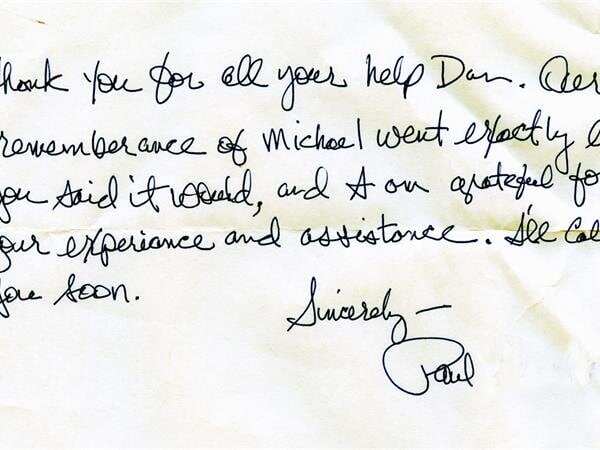 Thank you for all your help Dan. Our
rememberance of Michael went exactly
you said it would, and I am grateful for
your experiance and assistance. I'll Cal
you soon.
Sincerely —
Paul